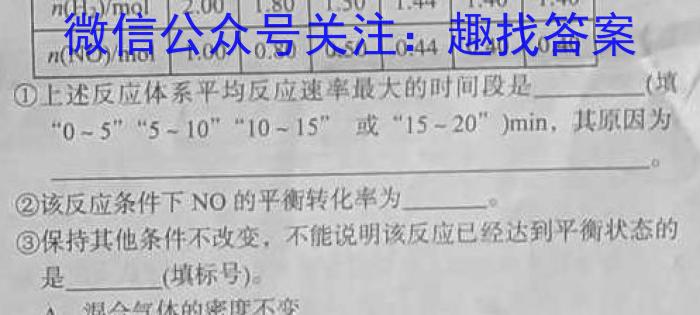 n(H₂)/mol 2.00 1.80 1.50 1.44 1.40 1.40
微信公众号关注：趣找答案
n(NO)/mol 1.00 0.80 0.50 0.44 0.40
①上述反应体系平均反应速率最大的时间段是________(填
“0~5”“5~10”“10~15” 或“15~20”)min，其原因为
________________。
②该反应条件下 NO 的平衡转化率为______。
③保持其他条件不改变，不能说明该反应已经达到平衡状态的
是_______(填标号)。
A. 混合气体的密度不变